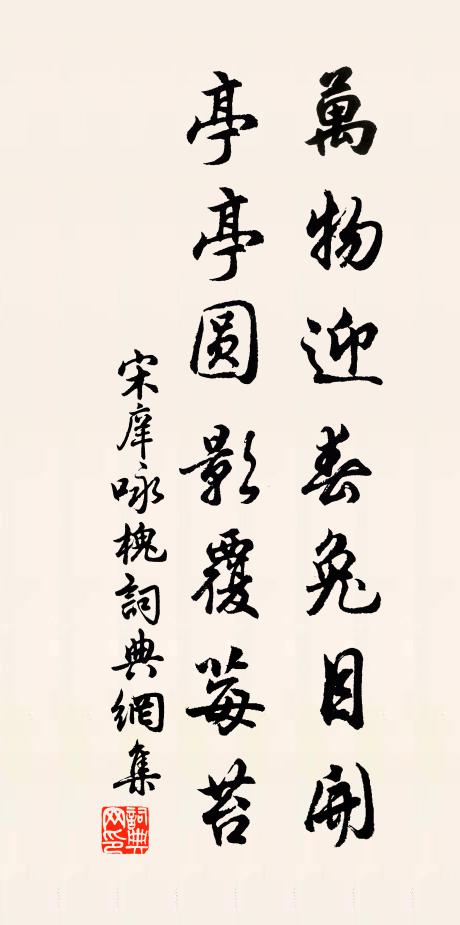 萬物迎春兔目開
亭亭圓影覆莓苔
宋庠咏槐詞典網集
詞典網印